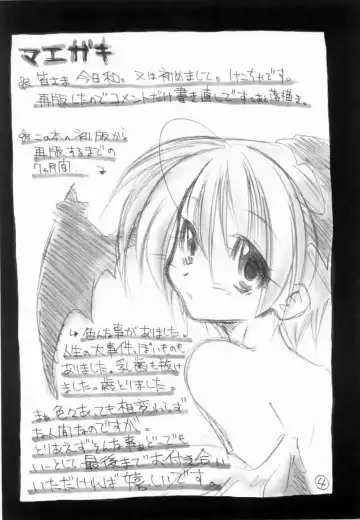 マエガキ
※皆さま今日和。又は初めまして。けこちゃです。
再版したのでコメントだけ書き直しです
※この本の初版から
再版するまでの
7ヶ月間、
色んな事がありました。
人生の大事件、ぽいものも
ありました。乳歯も抜け
ました。歳とりました。
まぁ色々あっても相変わらず
な人間なのですが、
とりあえずそんな事はどーでも
いーとして最後までお付き合い
いただければ嬉しいです。
4